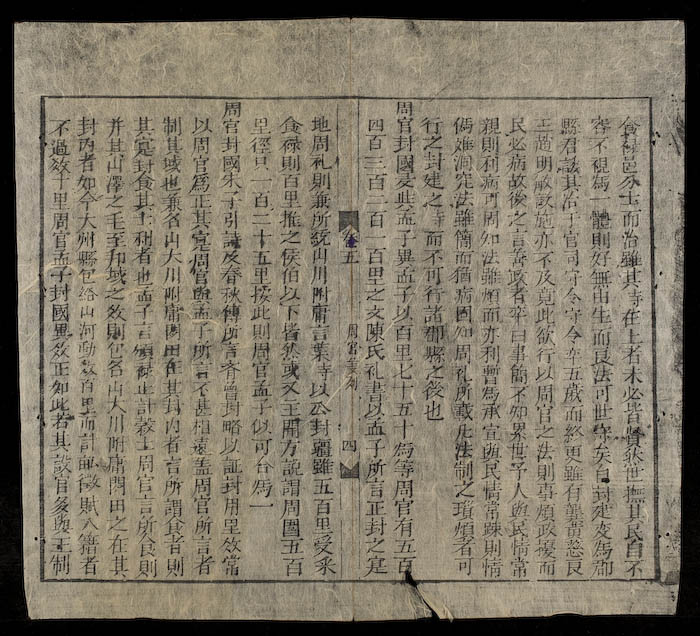 食祿邑分土而治雖其時在上者未必皆賢然世撫其民自不
容不視為一體則好無由生而良法可世守矣自封建变為郡
縣君設其治于官司守令守令卒五歲而終更雖有龔黃慈良
王趙明敏設施亦不及竟此欲行以周官之法則事煩政擾而
民必病故後之言善政者卒曰事簡不知累世予人與民情常
親則利病可周知法雖煩而亦利暫為承宣與民情常踈則情
偽難洞究法雖簡而猶病固知周礼所載凡法制之瑣煩者可
行之封建之時而不可行諸郡縣之後也
周官封國與孟子異孟子以百里七十五十為等周官有五百
四百三百二百一百里之文陳氏礼書以孟子所言正封之寔
卷五 周官 四
地周礼則兼所統山川附庸言葉時以公封疆雖五百里受采
食祿則百里推之侯伯以下皆然或又主開方說謂周國五百
里徑只一百二十五里按此則周官孟子似可合為一
周官封國朱子引詩及春秋傳所言齐魯封略以証封用里效常
以周官為正其寔周官與孟子所言不甚相遠盖周官所言者
制其域也兼名山大川附庸閑田在其封內者言所謂食者則
其寔封食其土利者也孟子言頒祿止計穀土周官言所食則
并其山澤之毛至邦域之效則包名山大川附庸閑田之在其
封內者如今大州縣包络山河動数百里而計畝徵賦入籍者
不過效十里周官孟子封國異效正如此若其設官多與王制